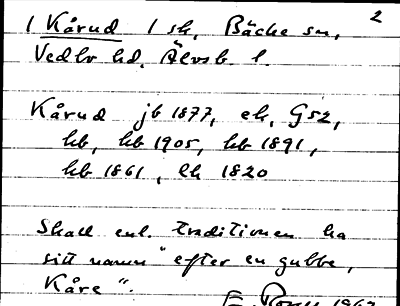 2
1 Kårud 1 sk, Bäcke sn,
Vedbo hd. Älvsb. l.
Kårud jb 1877, ek, G52,
hb, hb 1905, hb 1891,
hb 1861, lk 1820
Skall enl. traditionen ha
sitt namn "efter en gubbe,
Kåre".
1967